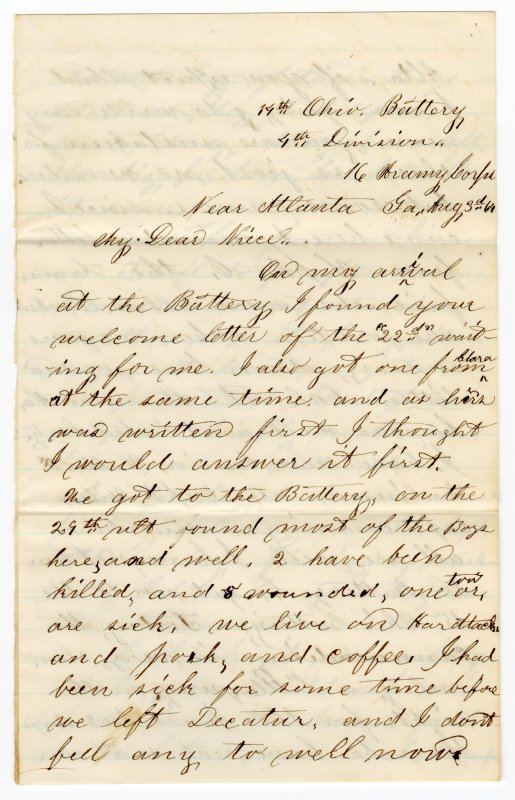 14th Ohio. Battery
4th Division..
16 Aramy Corps
Near Atlanta Ga, Aug 3rd 64
My Dear Niece..
On my arival
at the Battery I found your
welcome letter of the "22nd" wait-
ing for me. I also got one from Clara
at the same time. and as hers
was written first I thought
I would answer it first.
We got to the Battery, on the
29th ult found most of the Boys
here, and well. 2 have been
killed, and 8 wounded, one or tow
are sick. we live on Hardtack
and pork, and coffee. I had
been sick for some time before
we left Decatur, and I dont
feel any to well now.